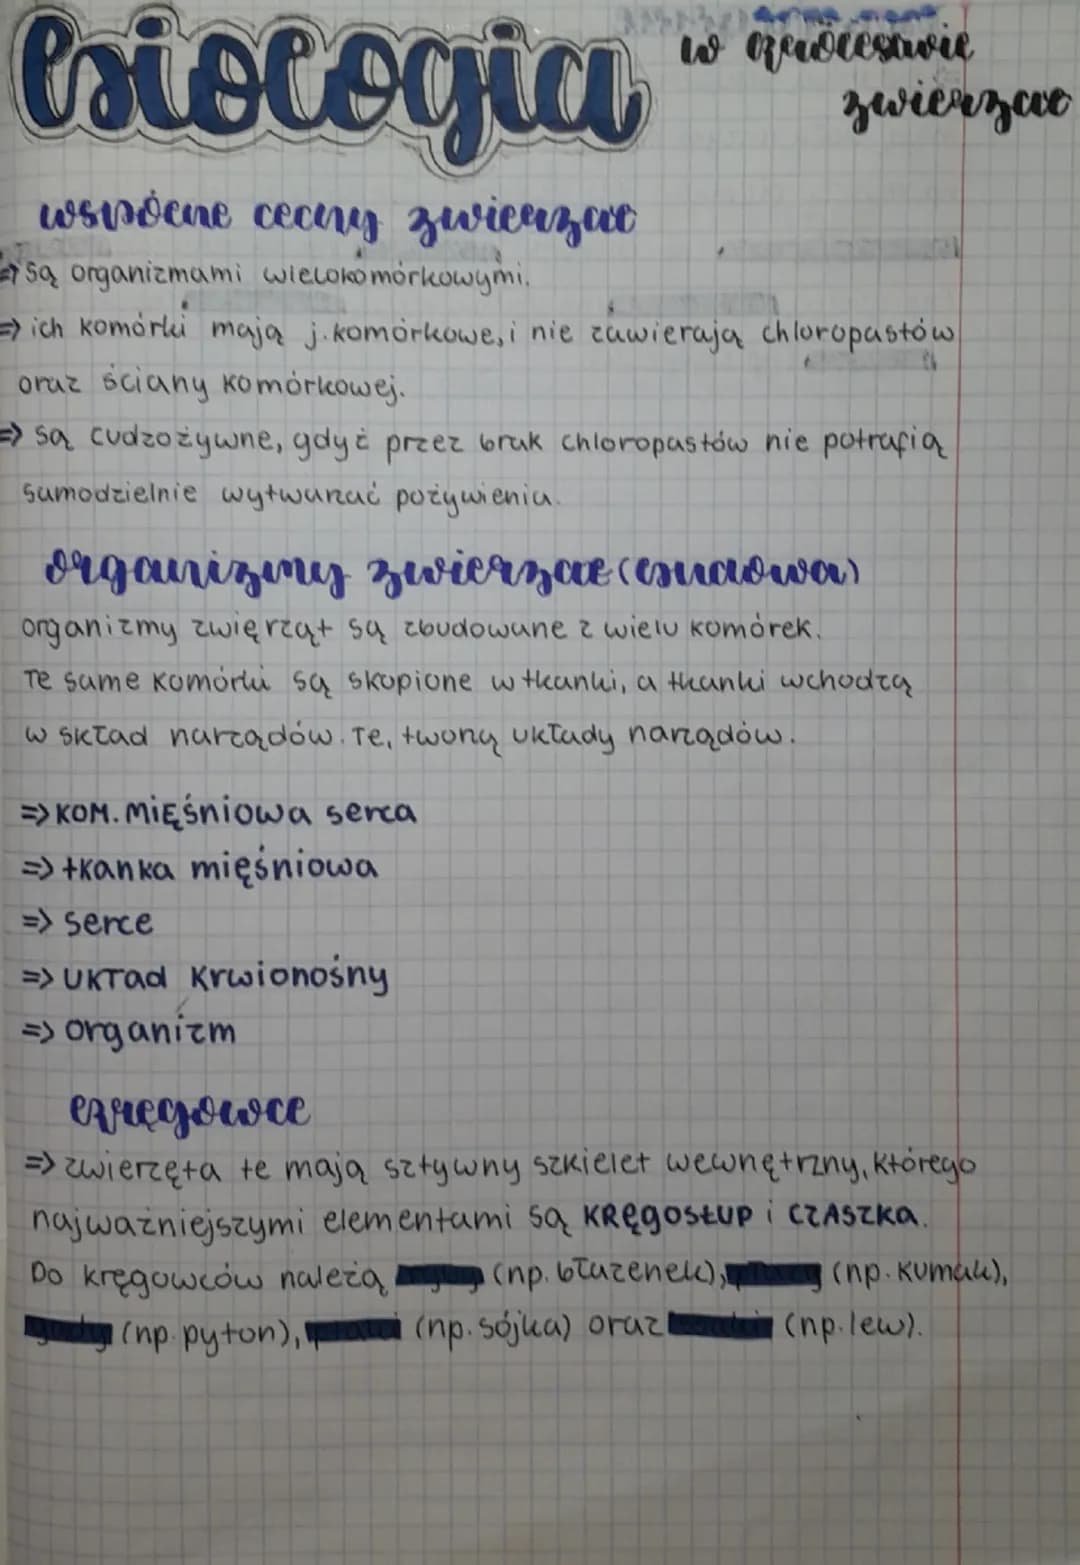 biologia
w królestwie
zwierząt
wspólne cechy zwierząt
=> są organizmami wielokomórkowymi.
=> ich komórki mają j.komórkowe, i nie zawierają chloropastów
oraz ściany komórkowej.
=> są cudzożywne, gdyż przez bruk chloropastów nie potrafią
samodzielnie wytwarzać pożywienia.
organizmy zwierząt (budowa)
organizmy zwięrząt są zbudowane z wielu komórek.
Te same komórki są skupione w tkanki, a tkanki wchodzą
w skład narządów. Te, tworzą układy narządów.
=> KOM. MIĘśniowa serca
=> tkanka mięśniowa
=> serce
=> układ krwionośny
=> organizm
kręgowce
=> zwierzęta te mają sztywny szkielet wewnętrzny, którego
najważniejszymi elementami są KRĘGOSŁUP i CZASZKA.
Do kręgowców należą (np. błazenek), (np. kumak),
(np. pyton), (np. sójka) oraz (np. lew).